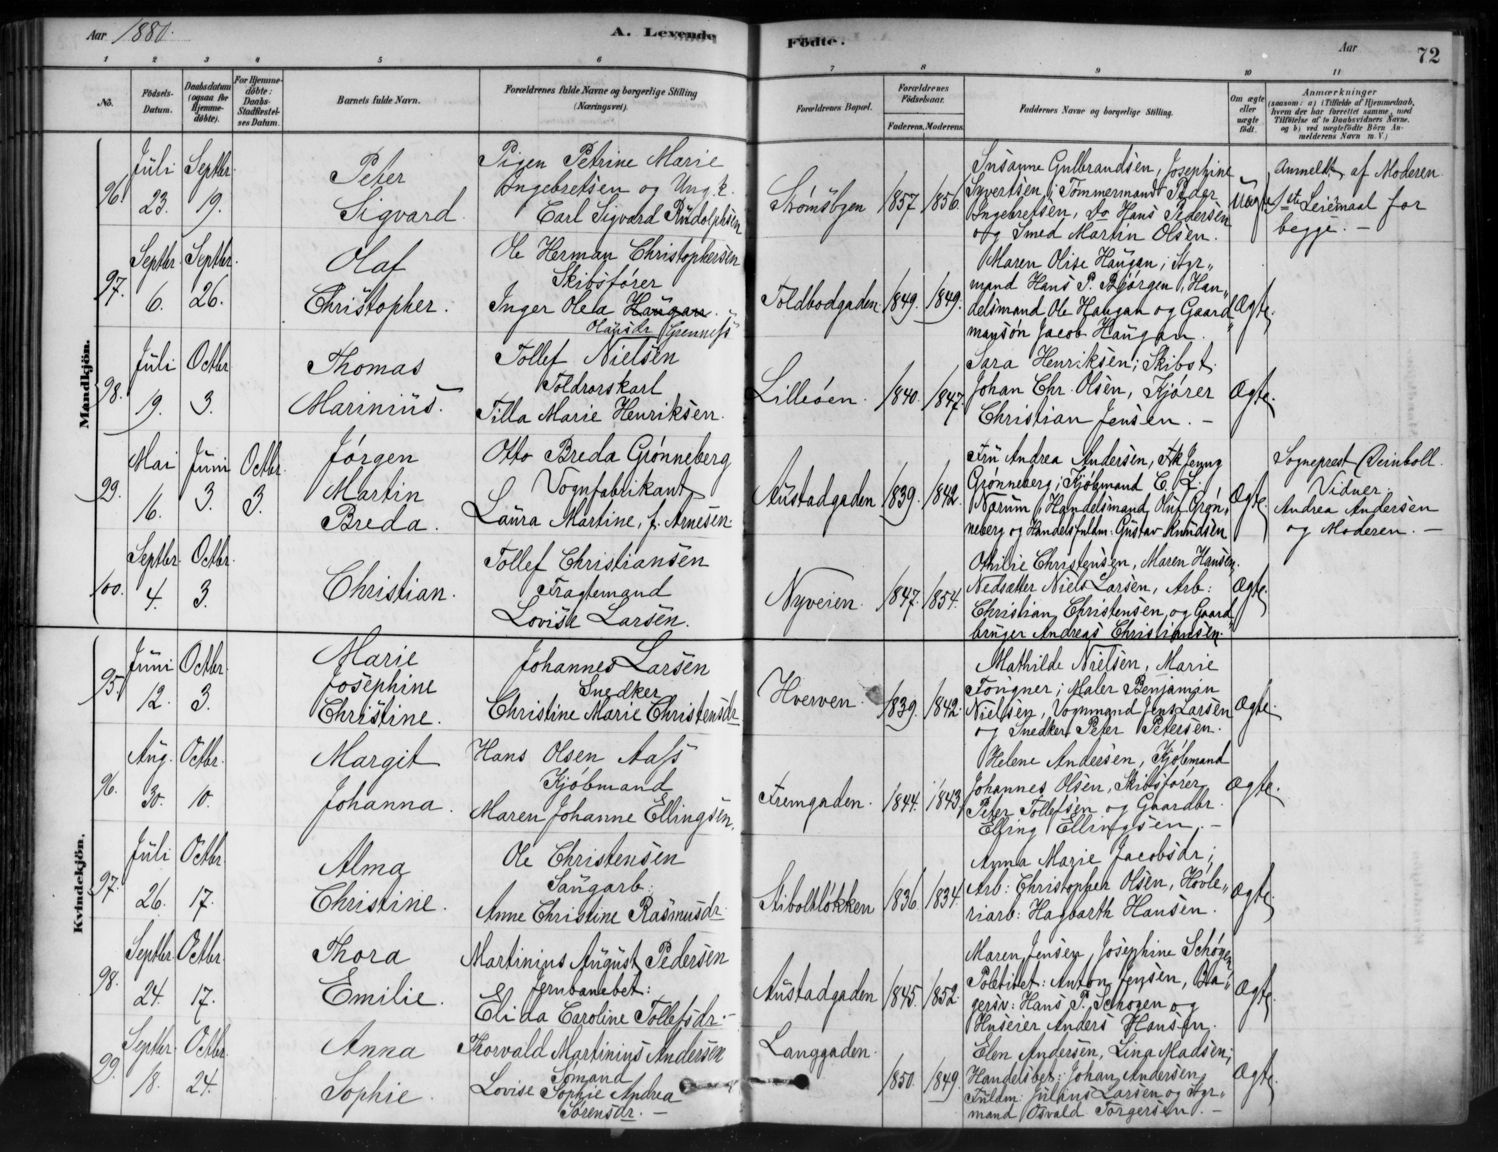 Aar 1880. A. Levende Födte. Aar 72
1 2 3 4 5 6 7 8 9 10 11
No. Födsels-Datum. Daabsdatum (ogsaa for Hjemme-döbte). For Hjemme-döbte: Daabs-Stadfæstel-ses Datum. Barnets fulde Navn. Forældrenes fulde Navne og borgerlige Stilling (Næringsvei). Forældrenes Bopæl. Forældrenes Födselsaar. Faderens. Moderens. Faddernes Navne og borgerlige Stilling. Om ægte eller uægte födt. Anmærkninger
Mandkjön.
96. Juli 23. Septbr. 19.
Peter
Sigvard.
Pigen Petrine Marie
Ingebretsen og Ung.k.
Carl Sigvard Rudolphsen
Strömsbgen 1857. 1856.
Susanne Gulbrandsen, Josephine
Syvertsen; Tömmermand Peder
Ingebretsen, do Hans Pedersen
og Smed Martin Olsen.
Uægte
Anmeldt af Moderen.
1ste Leiermaal for
begge. —
97. Septbr. 6. Septbr. 26.
Olaf
Christopher.
Ole Herman Christophersen
Skibsförer
Inger Olea Haugan.
Olausdr Grenness
Toldbodgaden. 1849. 1849.
Maren Olise Haugan; Styr-
mand Hans P. Björgen, Han-
delsmand Ole Haugan og Gaard
mansön Jacob Haugan.
Ægte.
98. Juli 19. Octbr 3.
Thomas
Marinius.
Tollef Nielsen
Toldrorskarl
Tilla Marie Henriksen.
Lilleöen. 1840. 1847.
Sara Henriksen; Skibst.
Johan Chr. Olsen, Kjörer
Christian Jensen. —
Ægte.
99. Mai 16. Juni 3. Octbr. 3.
Jörgen
Martin
Breda.
Otto Breda Grönneberg
Vognfabrikant
Laura Martine, f. Arnesen.
Austadgaden 1839. 1842.
Fru Andrea Andersen, Frk Jenny
Grönneberg; Kjöbmand C. F.
Narum, Handelsmand Knf. Grön-
neberg og Handelsfuldm: Gustav Knudsen
Ægte.
Sogneprest Deinboll.
Vidner:
Andrea Andersen
og Moderen. —
100. Septbr. 4. Octbr. 3.
Christian.
Tollef Christiansen
Fragtemand
Lovise Larsen.
Nyveien. 1847. 1854.
Othilie Christensen, Maren Hansen.
Nedsætter Niels Larsen, Arb:
Christian Christensen, og Gaard
bruger Andreas Christiansen.
Ægte.
Kvindekjön.
95. Juni 12. Octbr. 3.
Marie
Josephine
Christine.
Johannes Larsen
Snedker
Christine Marie Christensdr
Hverven. 1839. 1842.
Mathilde Nielsen, Marie
Fongner; Maler Benjamin
Nielsen, Vognmand Jens Larsen
og Snedker Peter Petersen.
Ægte.
96. Aug. 30. Octbr. 10.
Margit
Johanna.
Hans Olsen Aass
Kjöbmand
Maren Johanne Ellingsen.
Fremgaden. 1844. 1843.
Helene Andersen, Kjöbmand
Johannes Olsen, Skibsförer
Peter Tollefsen og Gaardbr.
Elling Ellingsen. —
Ægte.
97. Juli 26. Octbr 17.
Alma
Christine.
Ole Christensen
Saugarb:
Anne Christine Rasmusdr.
Stiboltlökken 1836. 1834.
Anna Marie Jacobsdr;
Arb: Christopher Olsen, Hövle-
riarb: Hagbarth Hansen.
Ægte.
98. Septbr 24. Octbr 17.
Thora
Emilie.
Martinius August Pedersen
Jernbanebet:
Elida Caroline Tollefsdr. —
Austadgaden 1845. 1852.
Maren Jensen, Josephine Schögen
Politibet: Anton Jensen, Ba-
gersv: Hans P. Schogen og
Huseier Anders Hansen.
Ægte.
99. Septbr. 18. Octbr. 24.
Anna
Sophie.
Thorvald Martinius Andersen
Sömand
Lovise Sophie Andrea
Sörensdr. —
Langgaden. 1850. 1849
Elen Andersen, Lina Madsen;
Handelsbet: Johan Andersen
Fuldm: Julius Larsen og Styr-
mand Osvald Torgersen. —
Ægte.